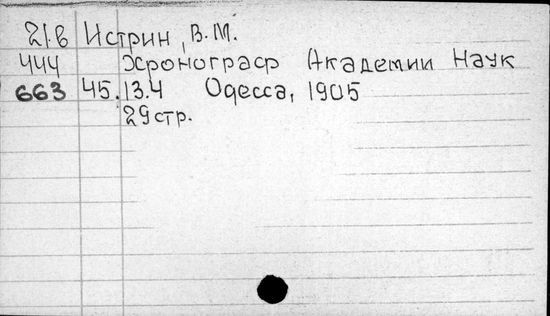 21в Истрин, В.М.
444 Хронограф Академии Наук
663 45.13.4 Одесса, 1905
29стр.